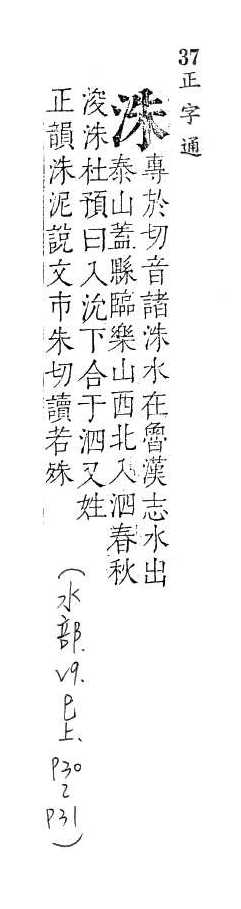 37正字通
洙
專於切音諸洙水在魯漢志水出
泰山蓋縣臨樂山西北入泗春秋
浚洙杜預曰入沇下合于泗又姓
正韻洙泥說文市朱切讀若殊
(水部.V9.巳上.P30~P31)